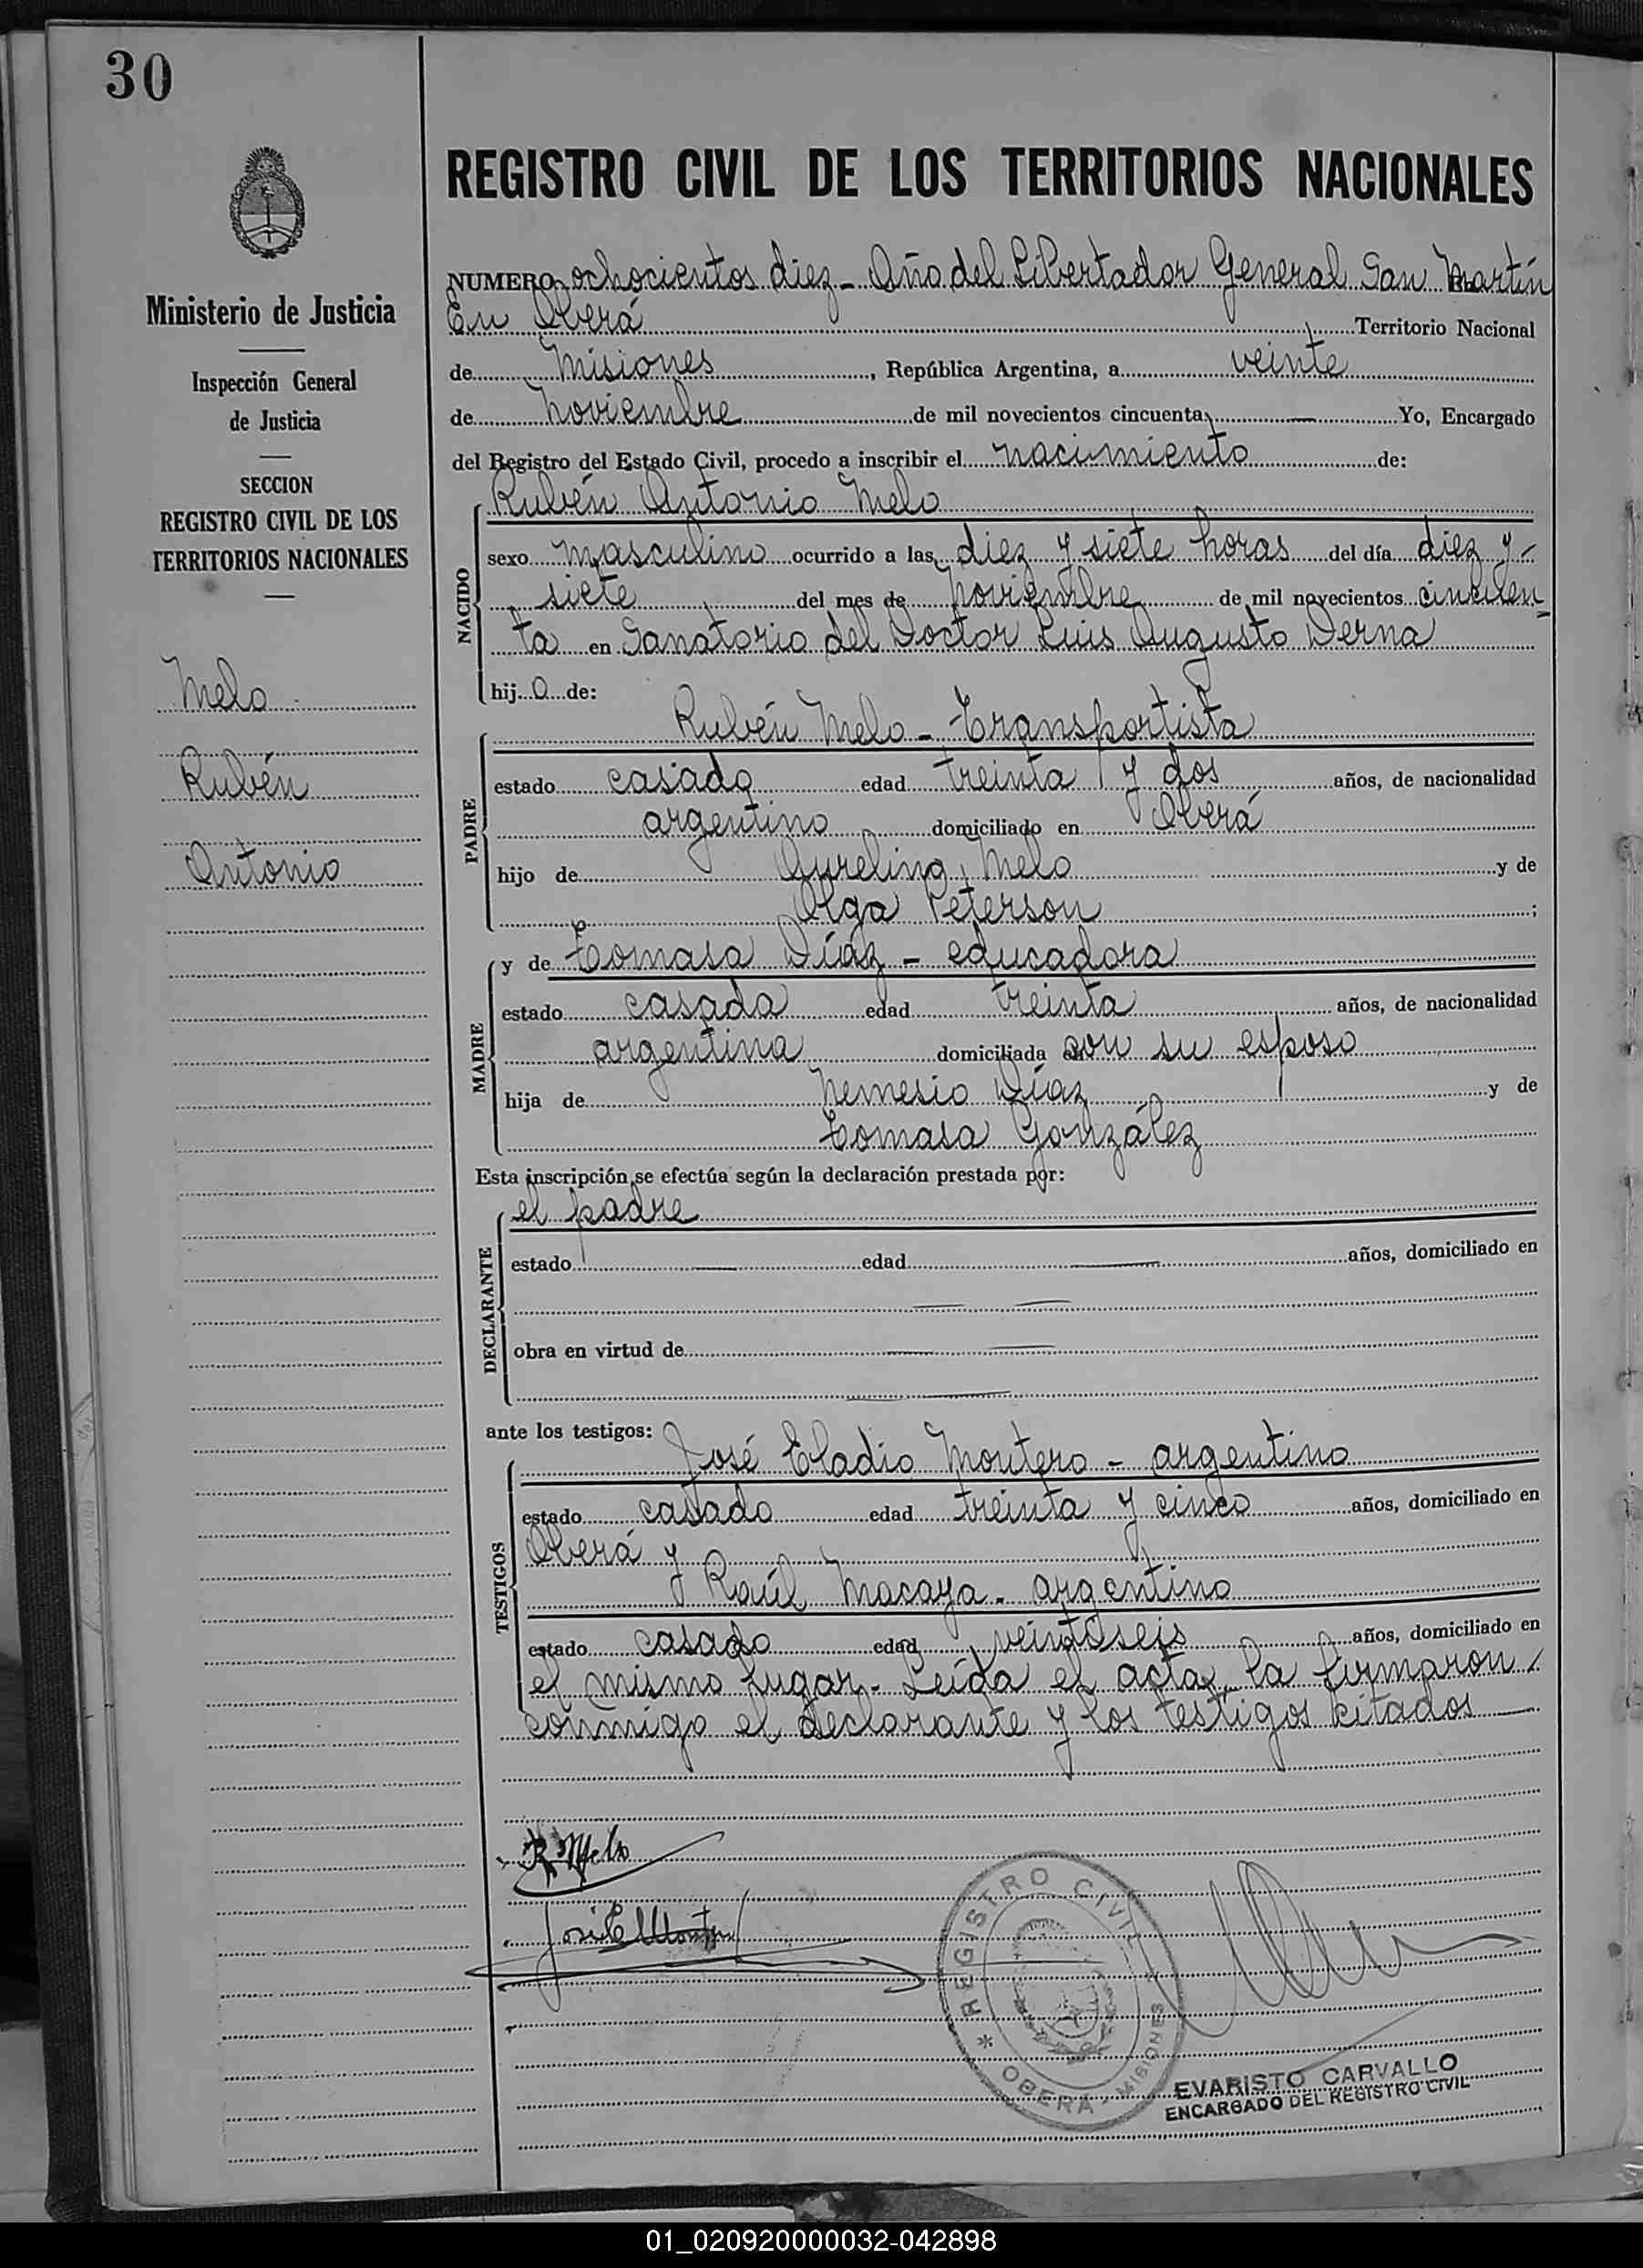 30
REGISTRO CIVIL DE LOS TERRITORIOS NACIONALES
Ministerio de Justicia
Inspección General
de Justicia
SECCION
REGISTRO CIVIL DE LOS
TERRITORIOS NACIONALES
Melo
Rubén
Antonio
NUMERO ochocientos diez - Año del Libertador General San Martín
En Oberá Territorio Nacional
de Misiones, República Argentina, a veinte
de Noviembre de mil novecientos cincuenta, — Yo, Encargado
del Registro del Estado Civil, procedo a inscribir el nacimiento de:
NACIDO
Rubén Antonio Melo
sexo masculino ocurrido a las diez y siete horas del día diez y -
siete del mes de Noviembre de mil novecientos cincuen=
ta en Sanatorio del Doctor Luis Augusto Derna
hijo de:
PADRE
Rubén Melo - Transportista
estado casado edad treinta y dos años, de nacionalidad
argentino domiciliado en Oberá
hijo de Aurelino Melo y de
Olga Peterson ;
MADRE
y de Tomasa Díaz - educadora
estado casada edad treinta años, de nacionalidad
argentina domiciliada con su esposo
hija de Nemesio Díaz y de
Tomasa González
Esta inscripción se efectúa según la declaración prestada por:
DECLARANTE
el padre
estado — edad — años, domiciliado en
— —
obra en virtud de — —
— —
ante los testigos:
TESTIGOS
José Eladio Montero - argentino
estado casado edad treinta y cinco años, domiciliado en
Oberá y
Raúl Macaya - argentino
estado casado edad veintiseis años, domiciliado en
el mismo lugar - Leída el acta, la firmaron
conmigo el declarante y los testigos citados —
R Melo
José E Montero
REGISTRO CIVIL
* OBERA - MISIONES
EVARISTO CARVALLO
ENCARGADO DEL REGISTRO CIVIL
01_020920000032-042898